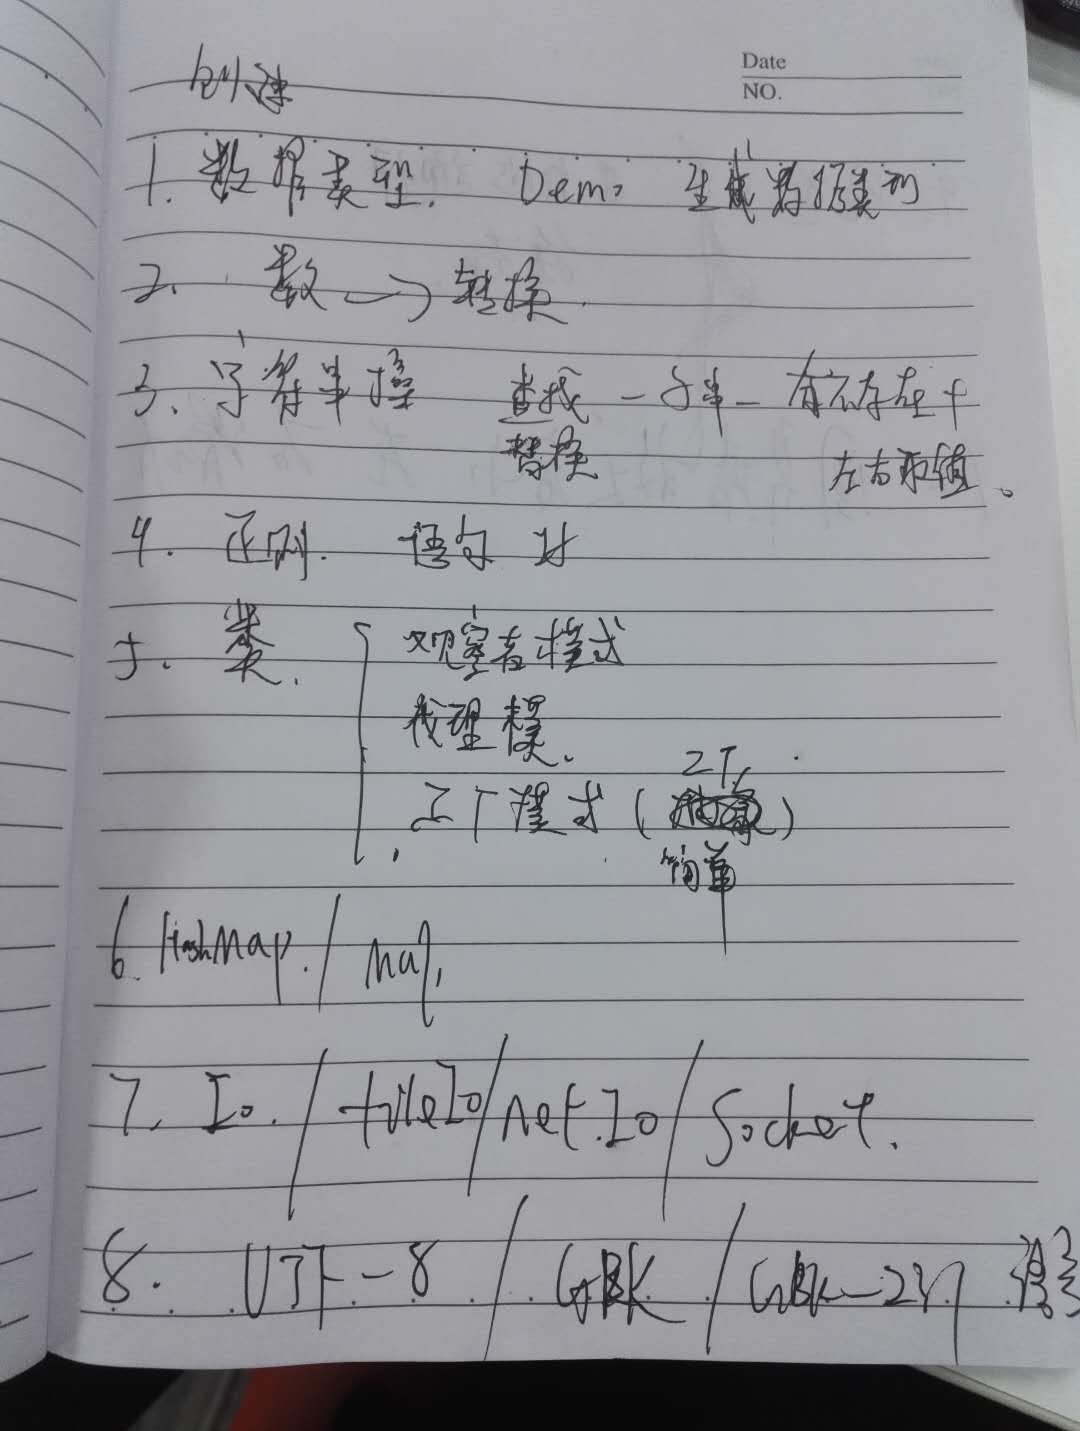 Date
NO.
创建
1. 数据类型. Demo 生成数据类型
2. 数 → 转换.
3、字符串操 查找一子串一 存不存在
替换 左右取值。
4. 正则. 语句
5. 类. 观察者模式
代理模.
工厂模式 (
工厂
简单
6. HashMap. / Map.
7. Io. / fileIo / net.Io / Socket.
8. UTF-8 / GBK /